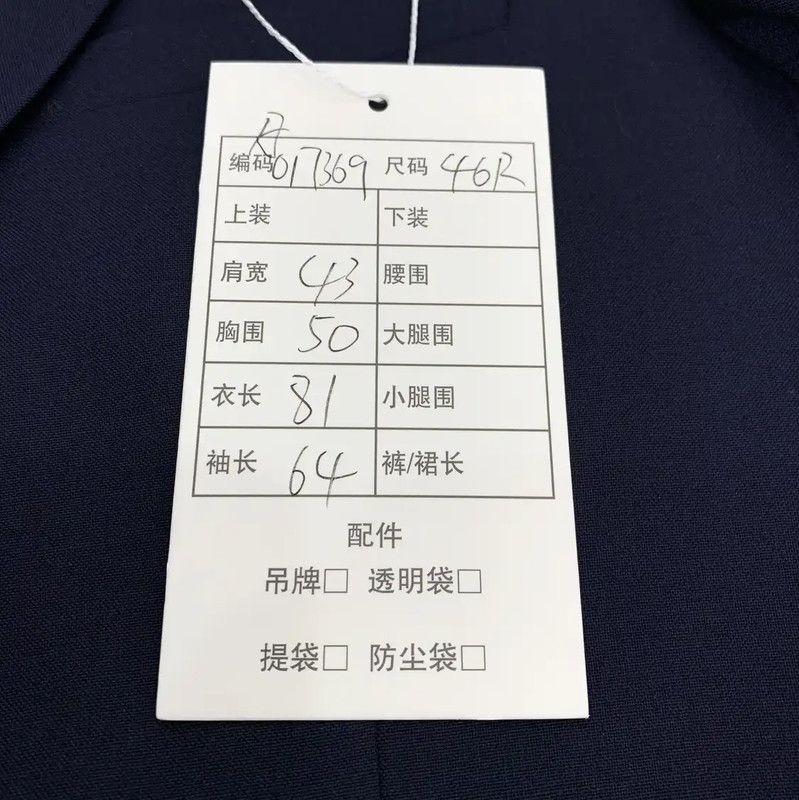 编码 A017369 尺码 46R
上装 下装
肩宽 43 腰围
胸围 50 大腿围
衣长 81 小腿围
袖长 64 裤/裙长
配件
吊牌□ 透明袋□
提袋□ 防尘袋□